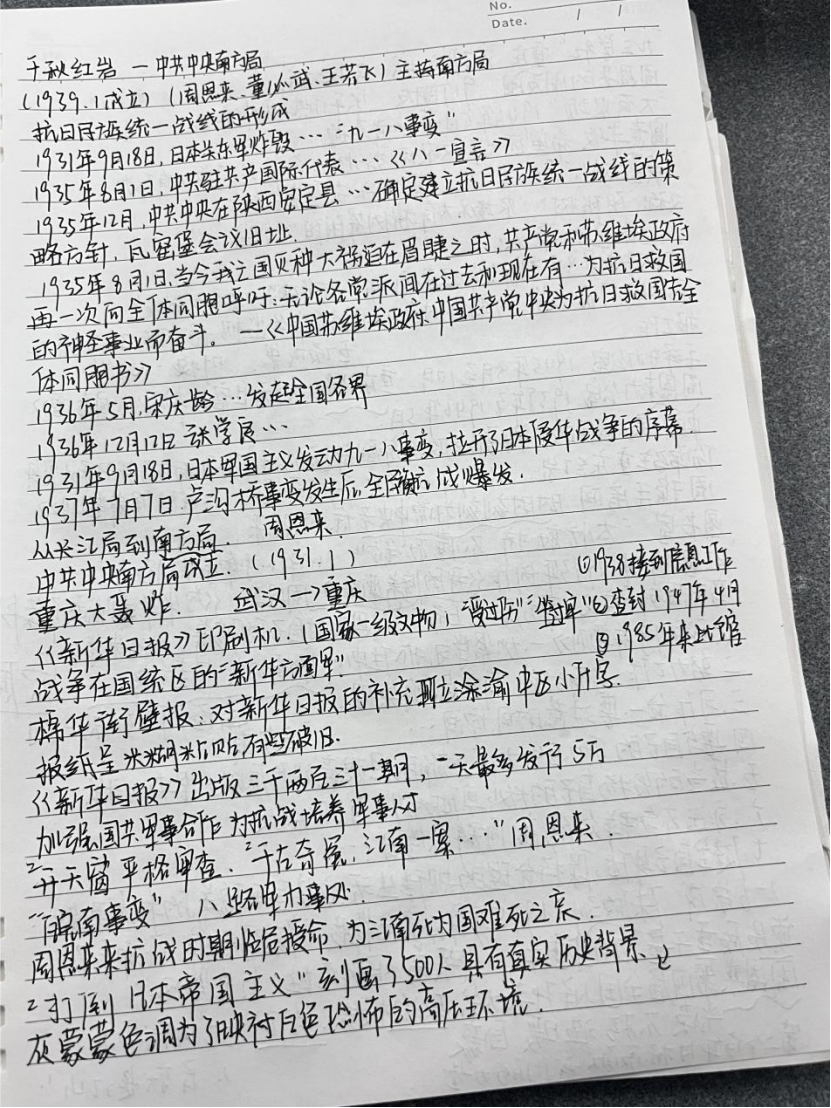 No.
Date. / /
千秋红岩 — 中共中央南方局
(1939.1成立)(周恩来、董必武、王若飞)主持南方局
抗日民族统一战线的形成
1931年9月18日,日本关东军炸毁…"九一八事变"
1935年8月1日,中共驻共产国际代表…《八一宣言》
1935年12月,中共中央在陕西安定县…确定建立抗日民族统一战线的策
略方针,瓦窑堡会议旧址.
1935年8月1日,当今我亡国灭种大祸迫在眉睫之时,共产党和苏维埃政府
再一次向全体同胞呼吁:无论各党派间在过去和现在有…为抗日救国
的神圣事业而奋斗。——《中国苏维埃政府、中国共产党中央为抗日救国告全
体同胞书》
1936年5月,宋庆龄…发起全国各界
1936年12月12日 张学良…
1931年9月18日,日本军国主义发动九一八事变,拉开了日本侵华战争的序幕.
1937年7月7日.卢沟桥事变发生后,全民族抗战爆发.
从长江局到南方局. 周恩来.
中共中央南方局成立.(1931.1) ①1938接到信息工作
重庆大轰炸. 武汉→重庆
《新华日报》印刷机.(国家一级文物,"受过伤""坐过牢"②查封1947年4月
战争在国统区的"新华方面军" ③1985年来此馆
棉华街壁报:对新华日报的补充 渝中区小什字.
报纸呈米糊粘贴有些破旧.
《新华日报》出版三千两百三十一期,一天最多发行5万
加强国共军事合作为抗战培养军事人才
"开天窗"严格审查."千古奇冤,江南一案…"周恩来.
"皖南事变" 八路军办事处.
周恩来来抗战时期临危授命.为江南死国难死之哀.
"打倒日本帝国主义"刻画了500人具有真实历史背景.
灰蒙蒙色调为了映衬白色恐怖的高压环境.